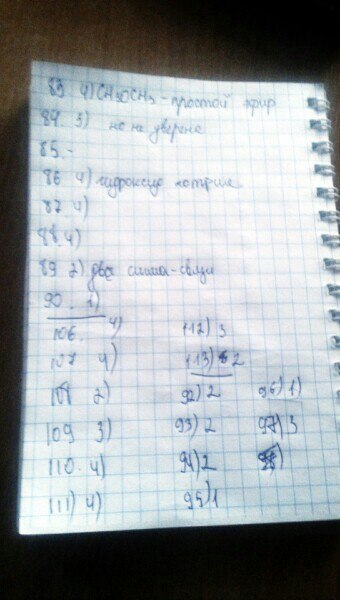 83 4) CH3OCH3 - простой эфир
84. 3) но не уверена
85. -
86 4) гидроксид натрия
87 4)
88 4)
89 2) две сигма-связи
90. 1)
106. 4)
107 4)
108 2)
109 3)
110. 4)
111) 4)
112) 3
113) 2
92) 2
93) 2
94) 2
95) 1
96) 1)
97) 3